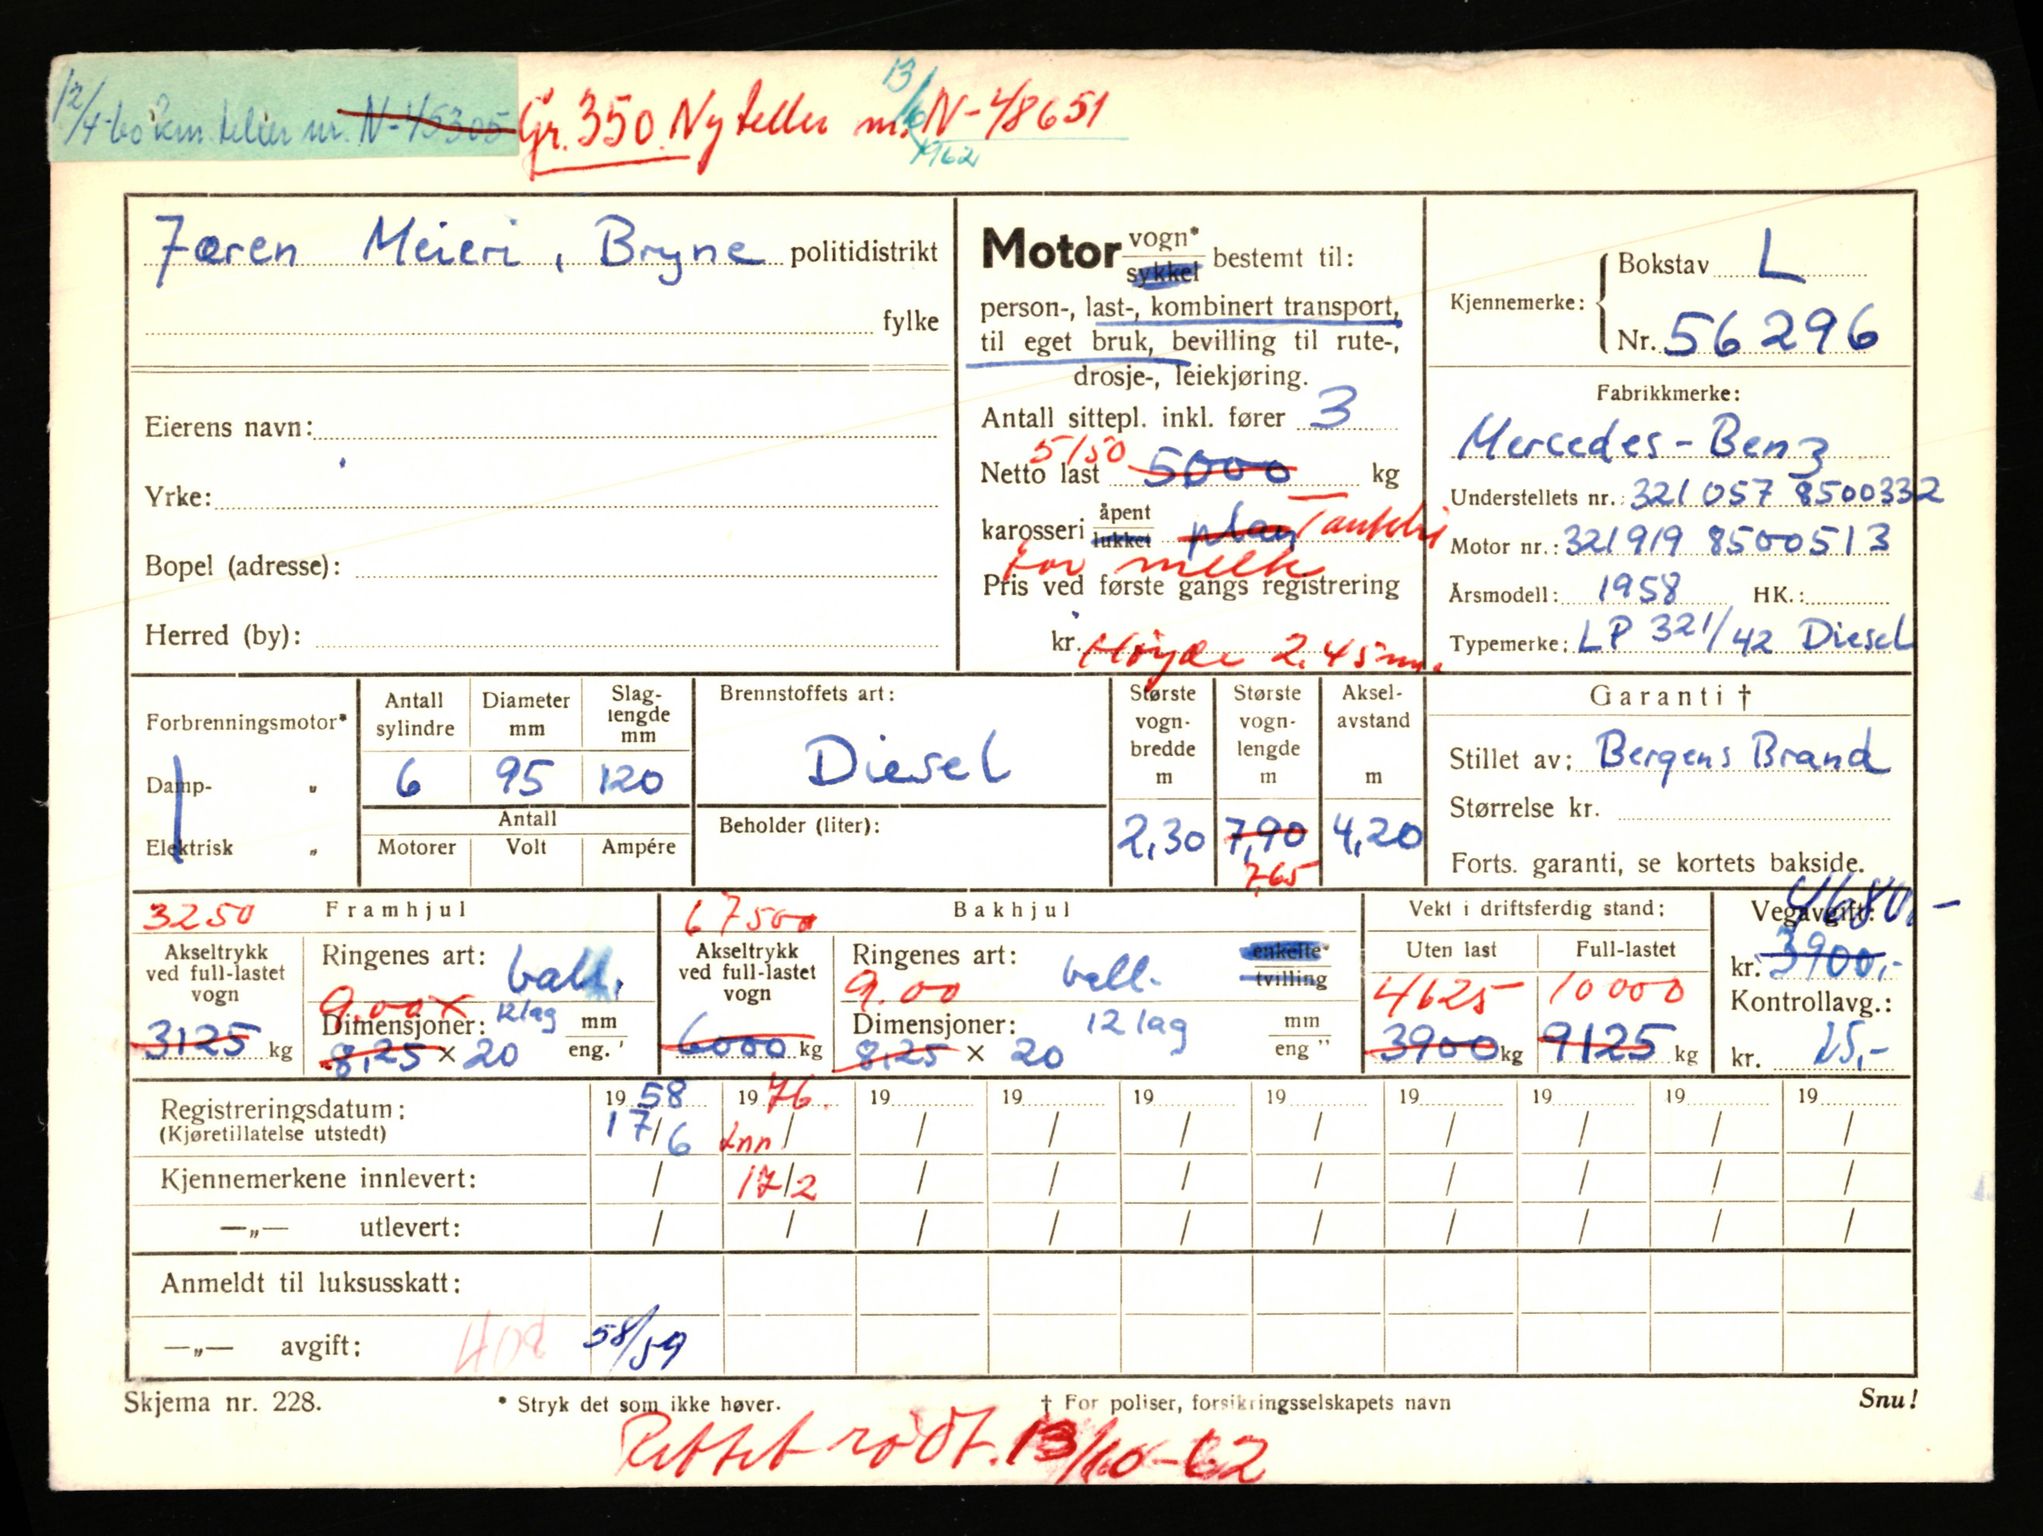 12/4-60 km. teller nr. N-45305 Gr. 350. Ny teller nr. N-48651
13/10 1962
Jæren Meieri, Bryne politidistrikt
fylke
Eierens navn:
Yrke:
Bopel (adresse):
Herred (by):
Motor vogn* sykkel bestemt til:
person-, last-, kombinert transport,
til eget bruk, bevilling til rute-,
drosje-, leiekjøring.
Antall sittepl. inkl. fører 3
5150
Netto last 5000 kg
karosseri åpent lukket plan Tankbil
for melk
Pris ved første gangs registrering
kr. Høyde 2.45 m.
Kjennemerke: Bokstav L
Nr. 56296
Fabrikkmerke:
Mercedes-Benz
Understellets nr.: 321057 8500332
Motor nr.: 321919 8500513
Årsmodell: 1958 HK.:
Typemerke: LP 321/42 Diesel
Forbrenningsmotor*
Damp- "
Elektrisk "
Antall sylindre Diameter mm Slaglengde mm
6 95 120
Antall
Motorer Volt Ampére
Brennstoffets art:
Diesel
Beholder (liter):
Største vognbredde m
2,30
Største vognlengde m
7,90
7,65
Akselavstand m
4,20
Garanti †
Stillet av: Bergens Brand
Størrelse kr.
Forts. garanti, se kortets bakside.
3250 Framhjul
Akseltrykk ved full-lastet vogn
3125 kg
Ringenes art: ball.
9.00 x
Dimensjoner: 12 lag mm
8,25 × 20 eng. '
67500 Bakhjul
Akseltrykk ved full-lastet vogn
6000 kg
Ringenes art: ball. enkelte* tvilling
9.00
Dimensjoner: 12 lag mm
8,25 × 20 eng "
Vekt i driftsferdig stand:
Uten last Full-lastet
4625 10000
3900 kg 9125 kg
Vegavgift: 4680,-
kr. 3900,-
Kontrollavg.:
kr. 15,-
Registreringsdatum: 19 58 19 76. 19 19 19 19 19 19 19 19
(Kjøretillatelse utstedt) 17/6 Inn / / / / / / / / /
Kjennemerkene innlevert: / 17/2 / / / / / / / /
—„— utlevert: / / / / / / / / / /
Anmeldt til luksusskatt:
—„— avgift: 58/59
Skjema nr. 228. * Stryk det som ikke høver. † For poliser, forsikringsselskapets navn Snu!
Rettet rødt. 13/10-62